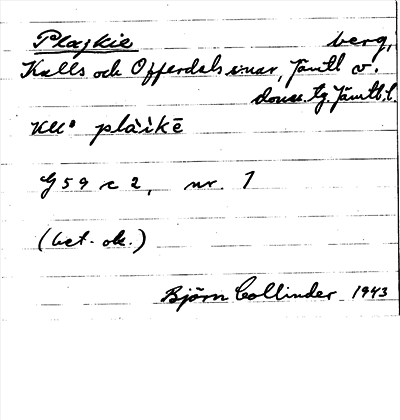 Plajkie berg,
Kalls och Offerdals snar, Jämtl o.
domsg. Jämtl. l.
KU° plàikē
G 59 c 2, nr. 1
(bet. ok.)
Björn Collinder 1943